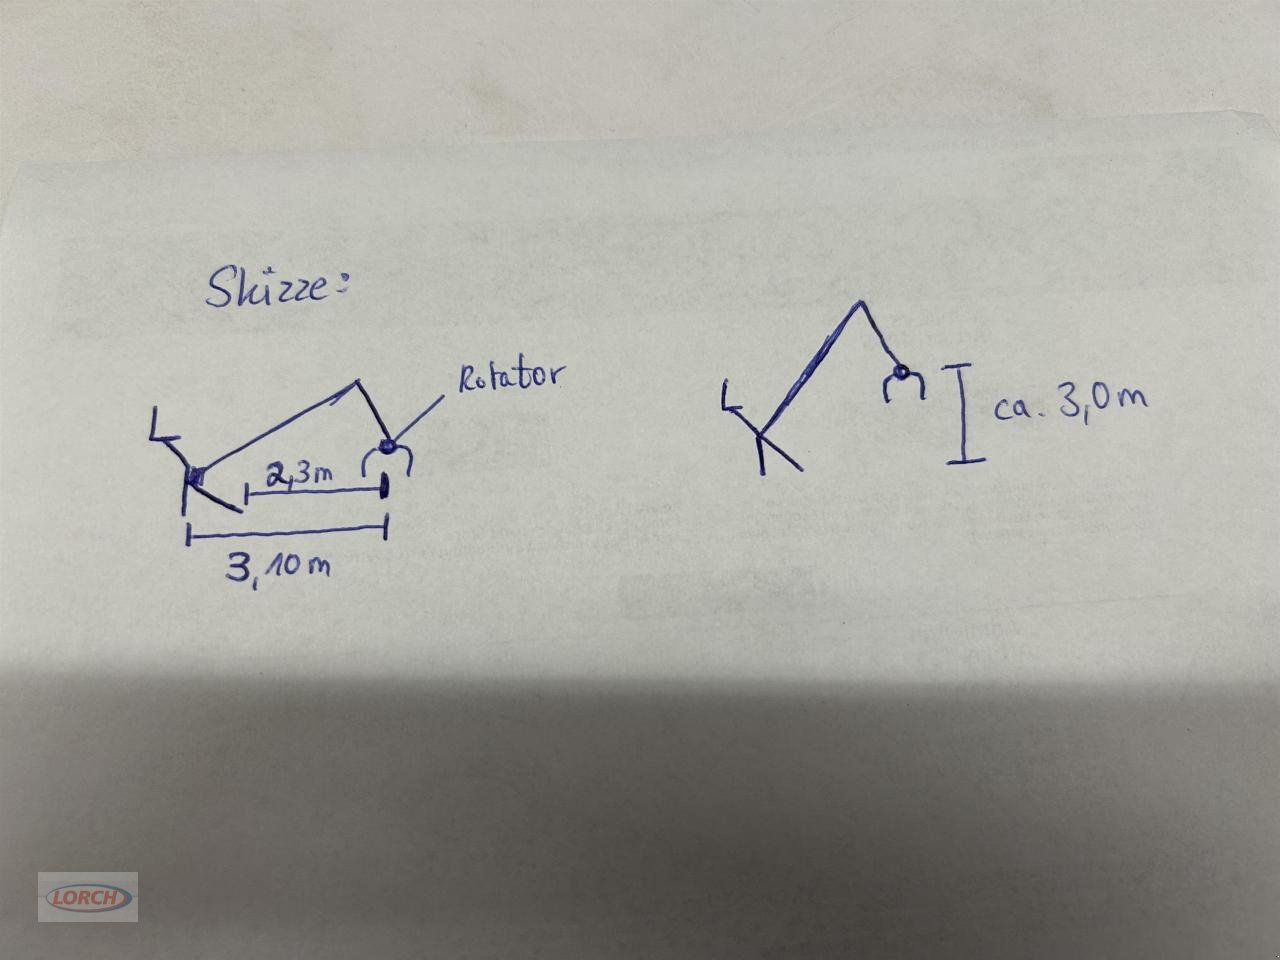 Skizze:
Rotator
2,3m
3,10m
ca. 3,0m
LORCH